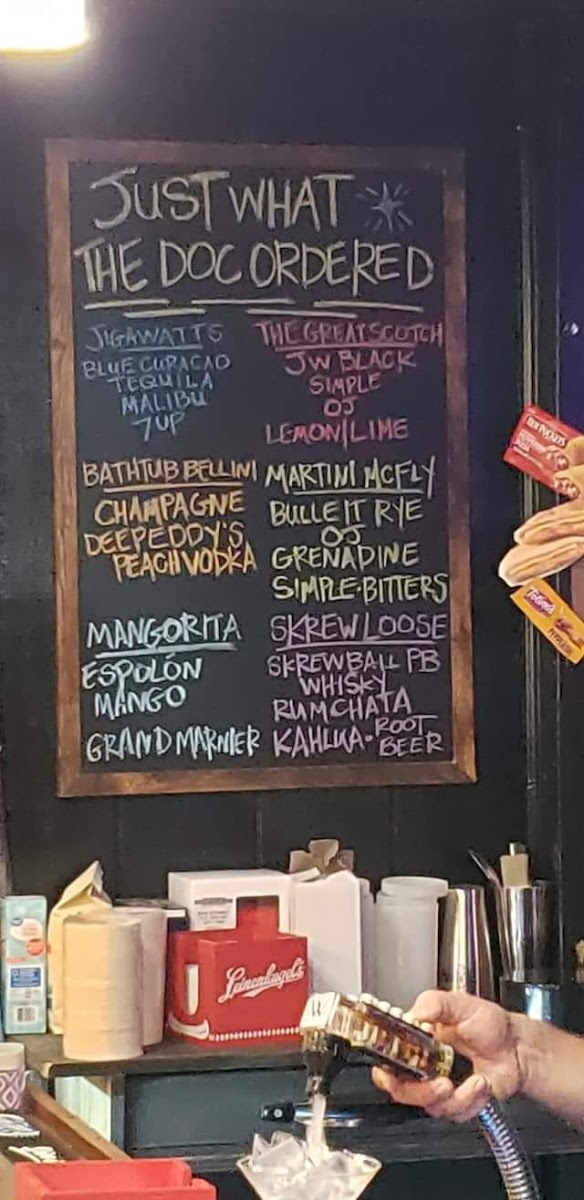 JUST WHAT
THE DOC ORDERED
JIGAWATTS
BLUE CURACAO
TEQUILA
MALIBU
7UP
THE GREAT SCOTCH
JW BLACK
SIMPLE
OJ
LEMON/LIME
BATHTUB BELLINI
CHAMPAGNE
DEEP EDDY'S
PEACH VODKA
MARTINI MCFLY
BULLEIT RYE
OJ
GRENADINE
SIMPLE·BITTERS
MANGORITA
ESPOLÓN
MANGO
GRAND MARNIER
SKREW LOOSE
SKREWBALL PB
WHISKY
RUMCHATA
KAHLUA-ROOT
BEER
HOT POCKETS
Leinenkugel's
W